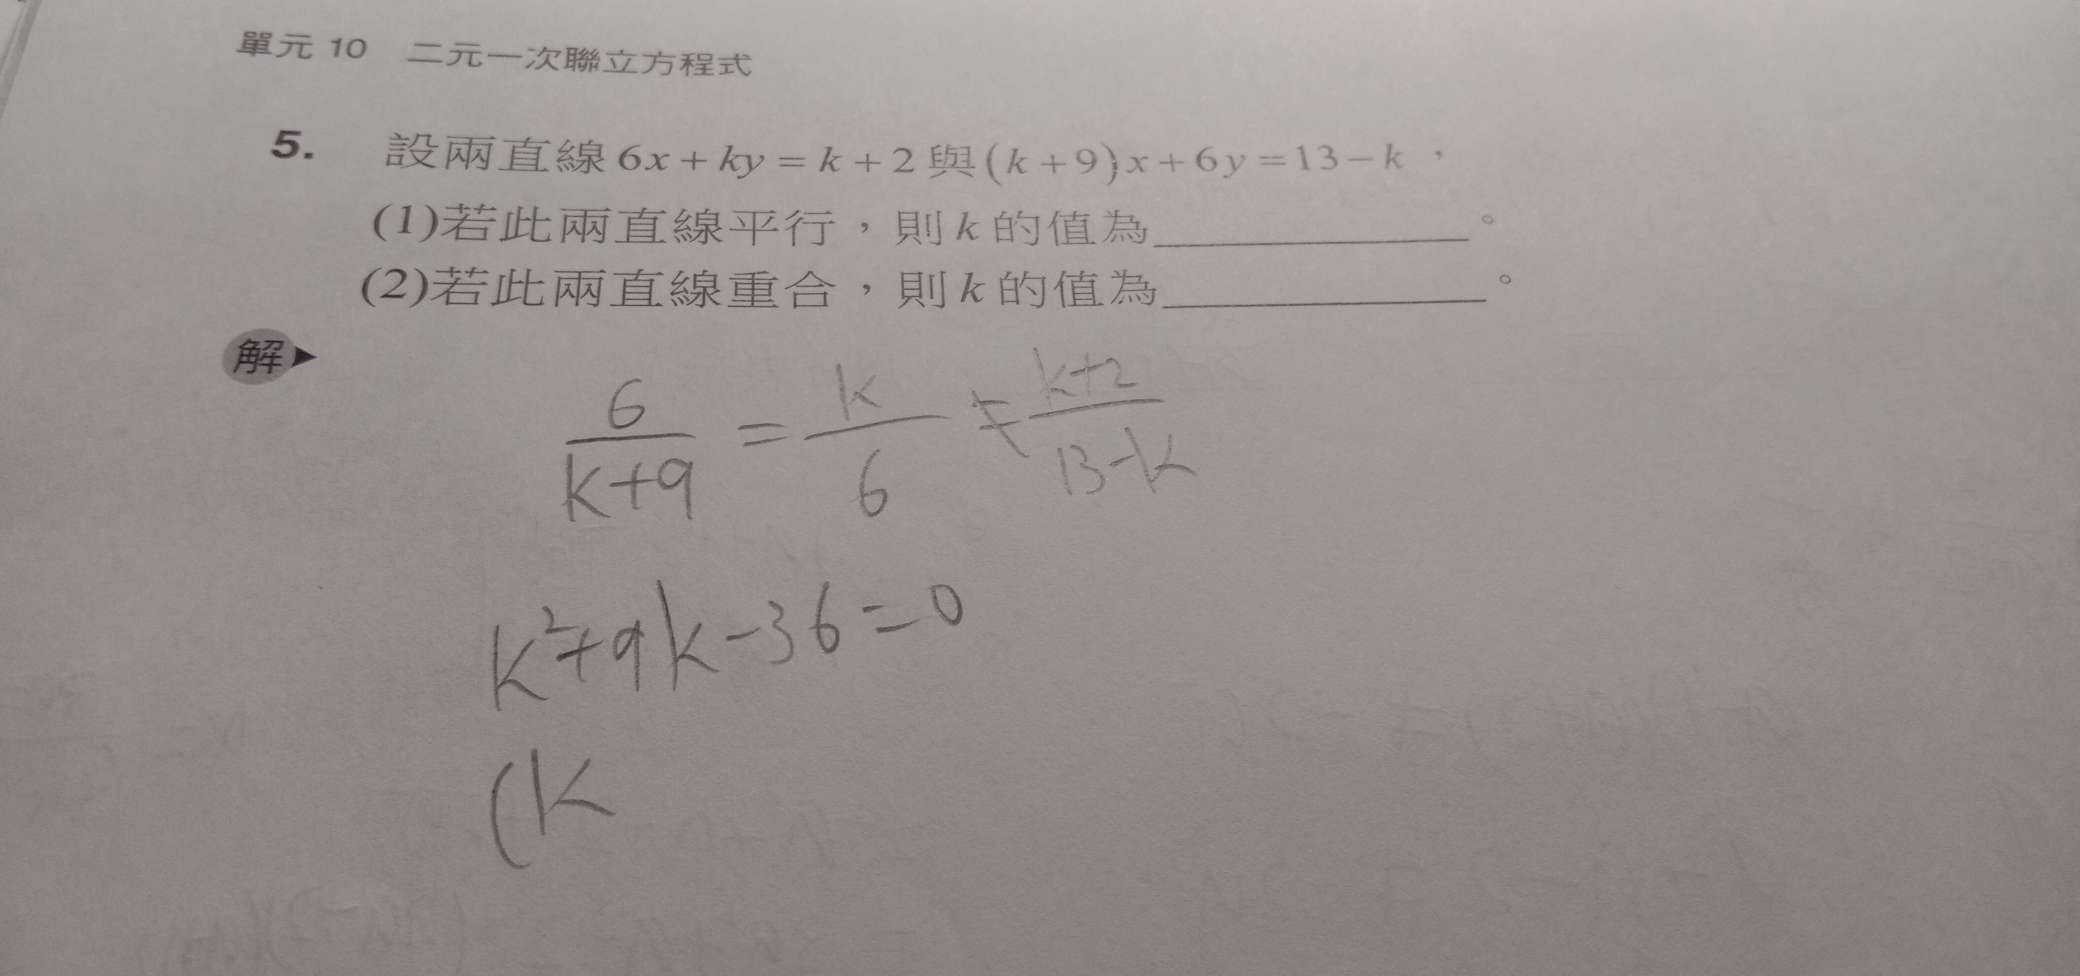 單元 10 二元一次聯立方程式
5. 設兩直線 6x + ky = k + 2 與 (k + 9)x + 6y = 13 − k，
(1)若此兩直線平行，則 k 的值為____________。
(2)若此兩直線重合，則 k 的值為____________。
解▶
6/(k+9) = k/6 ≠ (k+2)/(13-k)
k²+9k-36=0
(k